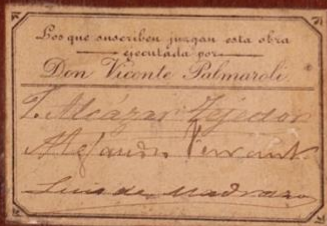 Los que suscriben juzgan esta obra
ejecutada por
Don Vicente Palmaroli
T. Alcázar Tejedor
Alejandro Ferrant
Luis de Madrazo